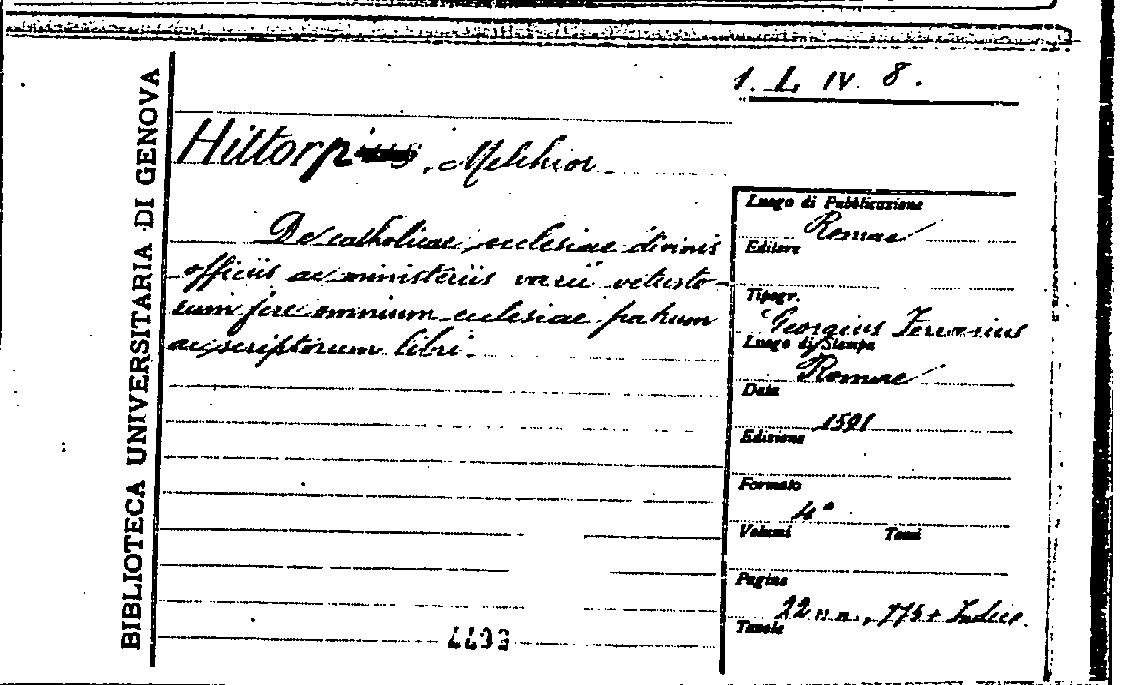 BIBLIOTECA UNIVERSITARIA DI GENOVA
1. L. IV. 8.
Hittorp, Melchior.
De catholicae ecclesiae divinis
officiis ac ministeriis varii vetusto-
rum fere omnium ecclesiae patrum
ac scriptorum libri.
Luogo di Pubblicazione
Romae
Editore
Tipogr.
Georgius Ferrarius
Luogo di Stampa
Romae
Data
1591
Edizione
Formato
4°
Volumi Tomi
Pagine
22 n.n., 775 + Indice.
Tavole